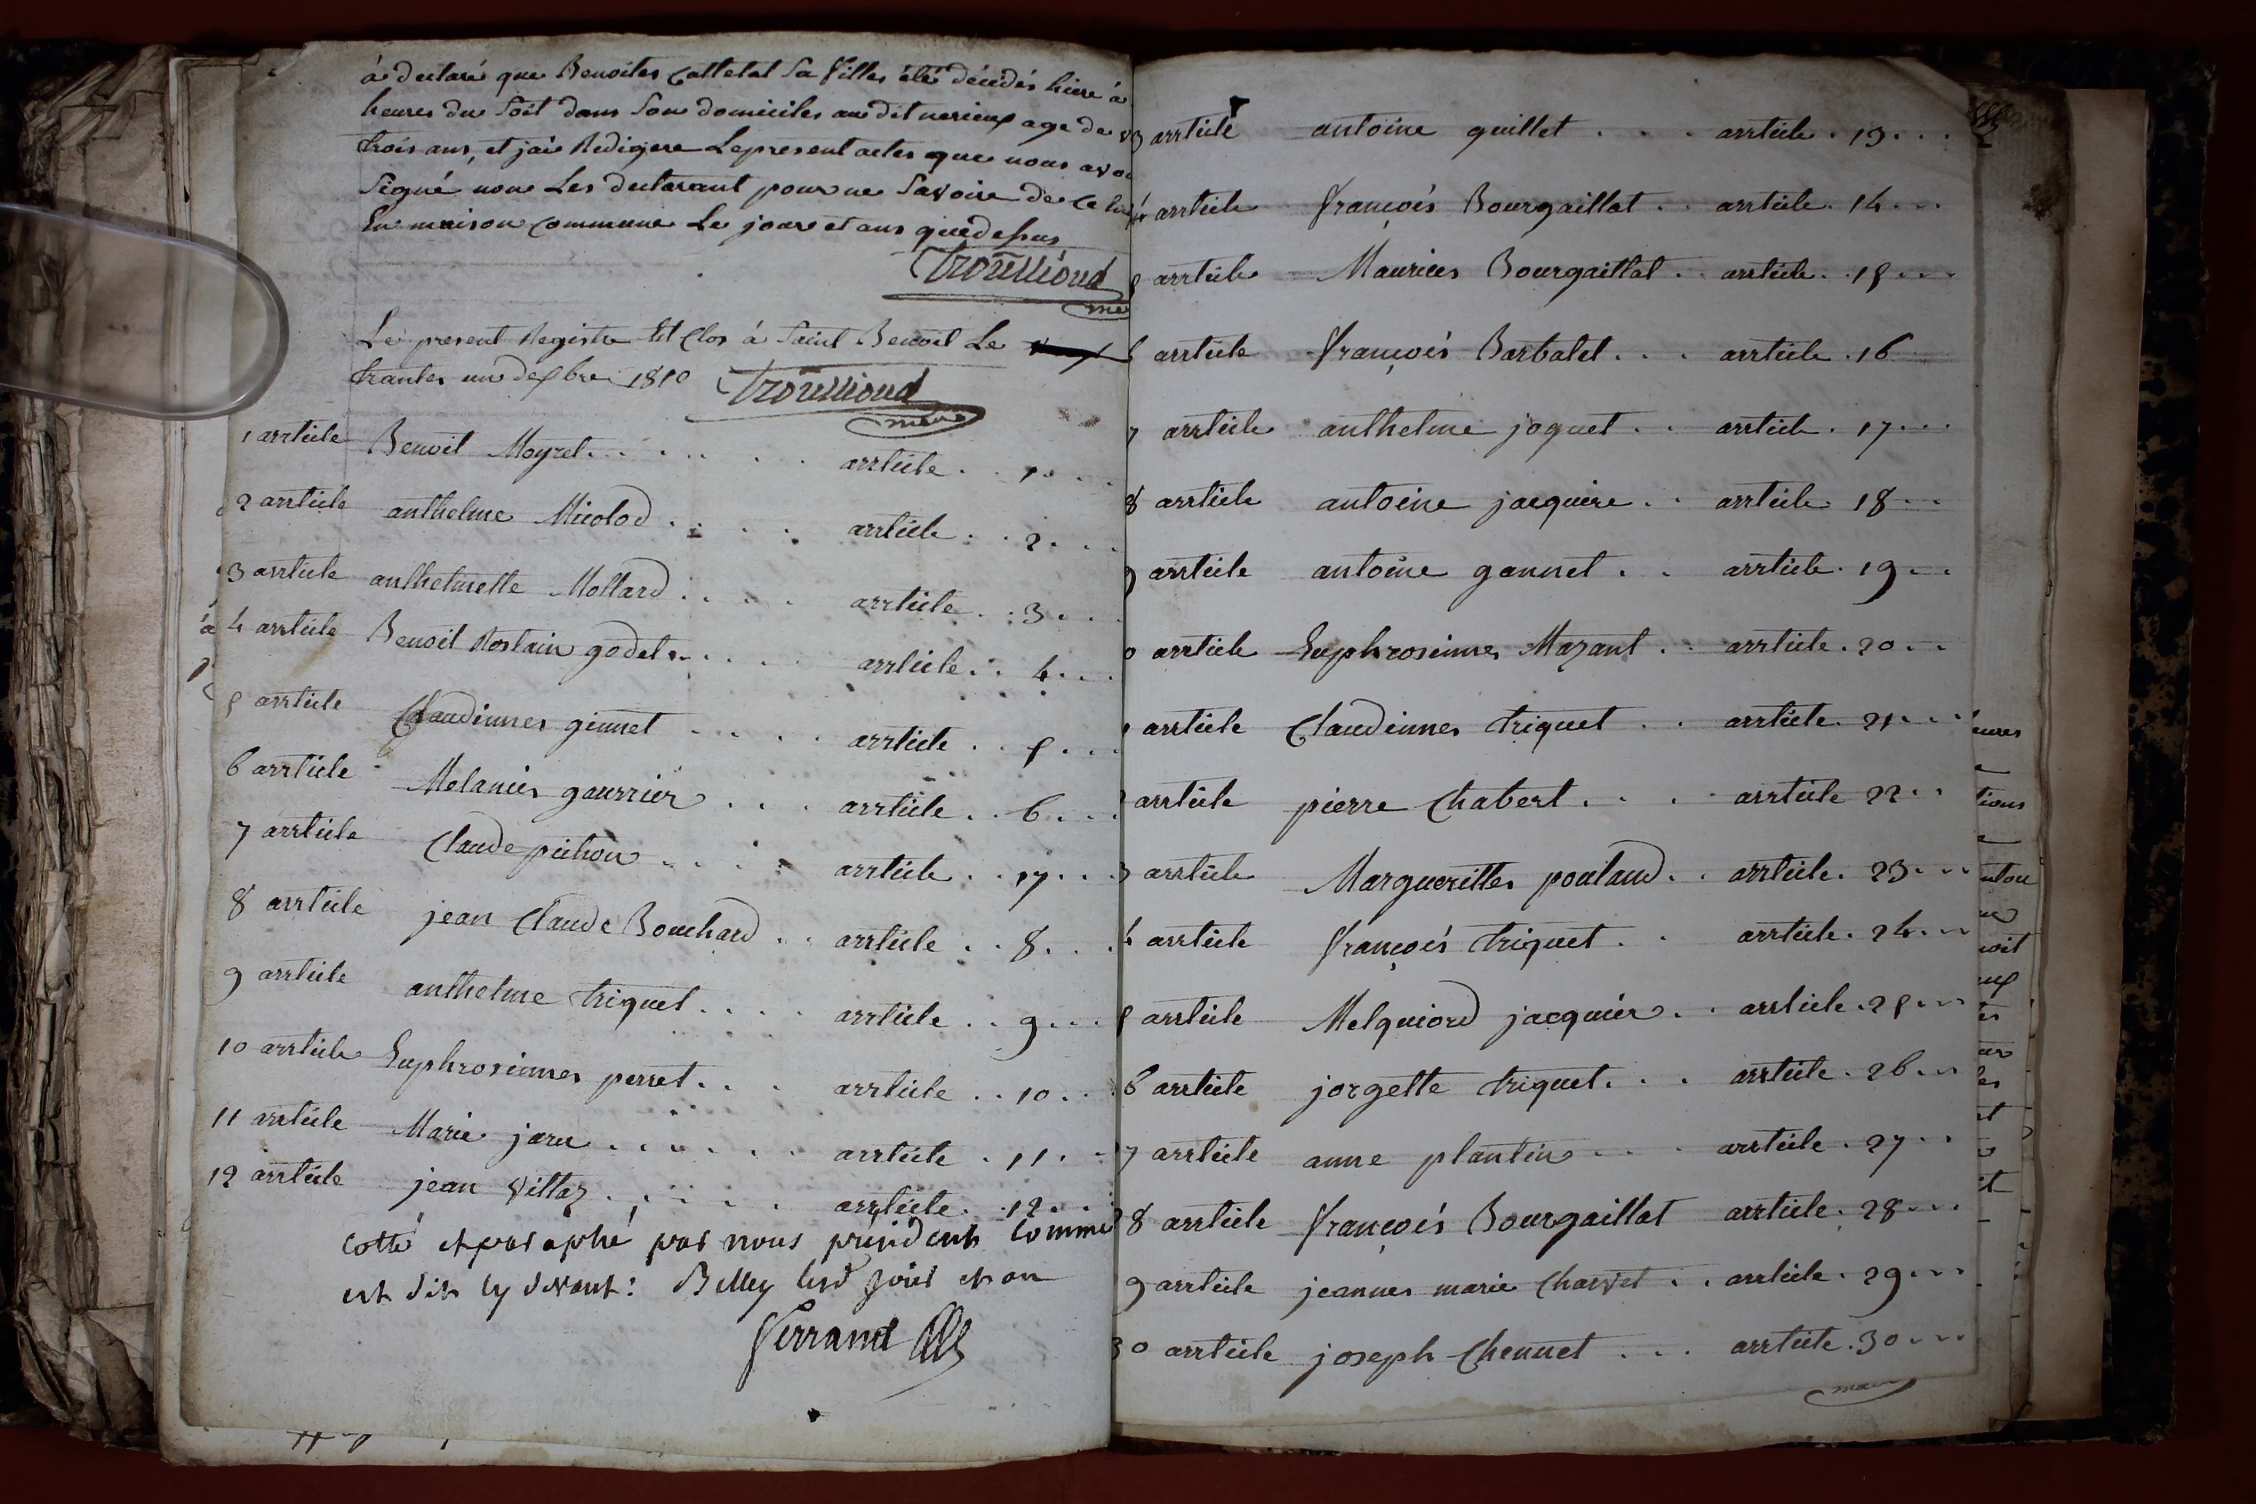 à declaré que Benoites Cattelat Sa filles été décédés hiere à
heures du Soit dans Son domiciles au dit nerieux age de
trois ans, et jaie Redigere Lepresent actes que nous avo
Signé non Les declarant pour ne Savoire de ce
En maison Commune Le jours et ans que dessus
Trouilloud
me
Le present Registre Est Clos à Saint Benoit Le
trantes un dexbre 1810 Trouilloud
maire
1 arrticle Benoit Moyret article 1
2 arrticle anthelme Micolod arrticle 2
3 arrticle anthelmette Mollard arrticle 3
4 arrticle Benoit Rostain godet arrticle 4
5 arrticle Claudinnes ginnet arrticle 5
6 arrticle Melanies gourrier arrticle 6
7 arrticle Claude pichon arrticle 17
8 arrticle jean Claude Bouchard arrticle 8
9 arrticle anthelme triquet arrticle 9
10 arrticle Euphrosinnes perret arrticle 10
11 arrticle Marie jaru arrticle 11
12 arrticle jean Villaz arrticle 12
Cotté et paraphé par nous président Comme
est dit cy devant: Belley lesd jour et an
Ferrand
3 arrticle antoine guillet arrticle 13
arrticle françois Bourgaillat arrticle 14
5 arrticle Maurices Bourgaillat arrticle 15
6 arrticle françois Barbatet arrticle 16
7 arrticle anthelme joguet arrticle 17
8 arrticle antoine jacquire arrticle 18
9 arrticle antoine gonnet arrticle 19
0 arrticle Euphrosinnes Mazant arrticle 20
1 arrticle Claudinnes triquet arrticle 21
arrticle pierre Chabert arrticle 22
3 arrticle Marguerittes poulaud arrticle 23
4 arrticle françois triquet arrticle 24
5 arrticle Melquiord jacquier arrticle 25
6 arrticle jorgette triquet arrticle 26
7 arrticle anne plantin arrticle 27
8 arrticle françois Bourgaillat arrticle 28
9 arrticle jeannes marie Charvet arrticle 29
30 arrticle joseph Chennet arrticle 30